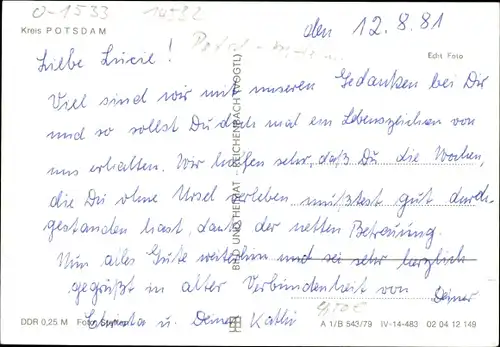 O-1533 14532
Kreis POTSDAM
den 12.8.81
Echt Foto
Liebe Lucie!
Viel sind wir mit unseren Gedanken bei Dir
und so sollst Du doch mal ein Lebenszeichen von
uns erhalten. Wir hoffen sehr, daß Du die Wochen,
die Du ohne Ursel verleben mußtest gut durch-
gestanden hast, dank der netten Betreuung.
Nun alles Gute weiterhin und sei sehr herzlich
gegrüßt in alter Verbundenheit von Deiner
u. Deiner Kathi
BILD UND HEIMAT REICHENBACH (VOGTL)
DDR 0,25 M Foto:
A 1/B 543/79 IV-14-483 02 04 12 149